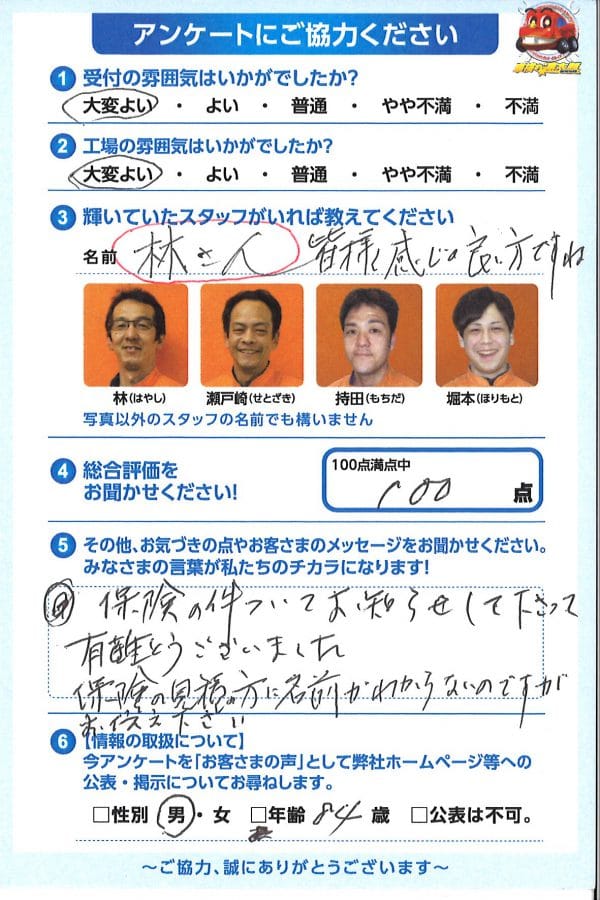 アンケートにご協力ください
1 受付の雰囲気はいかがでしたか?
大変よい ・ よい ・ 普通 ・ やや不満 ・ 不満
2 工場の雰囲気はいかがでしたか?
大変よい ・ よい ・ 普通 ・ やや不満 ・ 不満
3 輝いていたスタッフがいれば教えてください
名前 林さん 皆様 感じの良い方ですね
林(はやし) 瀬戸崎(せとざき) 持田(もちだ) 堀本(ほりもと)
写真以外のスタッフの名前でも構いません
4 総合評価を
お聞かせください!
100点満点中
100 点
5 その他、お気づきの点やお客さまのメッセージをお聞かせください。
みなさまの言葉が私たちのチカラになります!
保険の件ついてお知らせして下さって
有難とうございました
保険の見積の方に名前がわからないのですが
お伝え下さい
6 【情報の取扱について】
今アンケートを「お客さまの声」として弊社ホームページ等への
公表・掲示についてお尋ねします。
□性別 男・女 □年齢 84 歳 □公表は不可。
～ご協力、誠にありがとうございます～